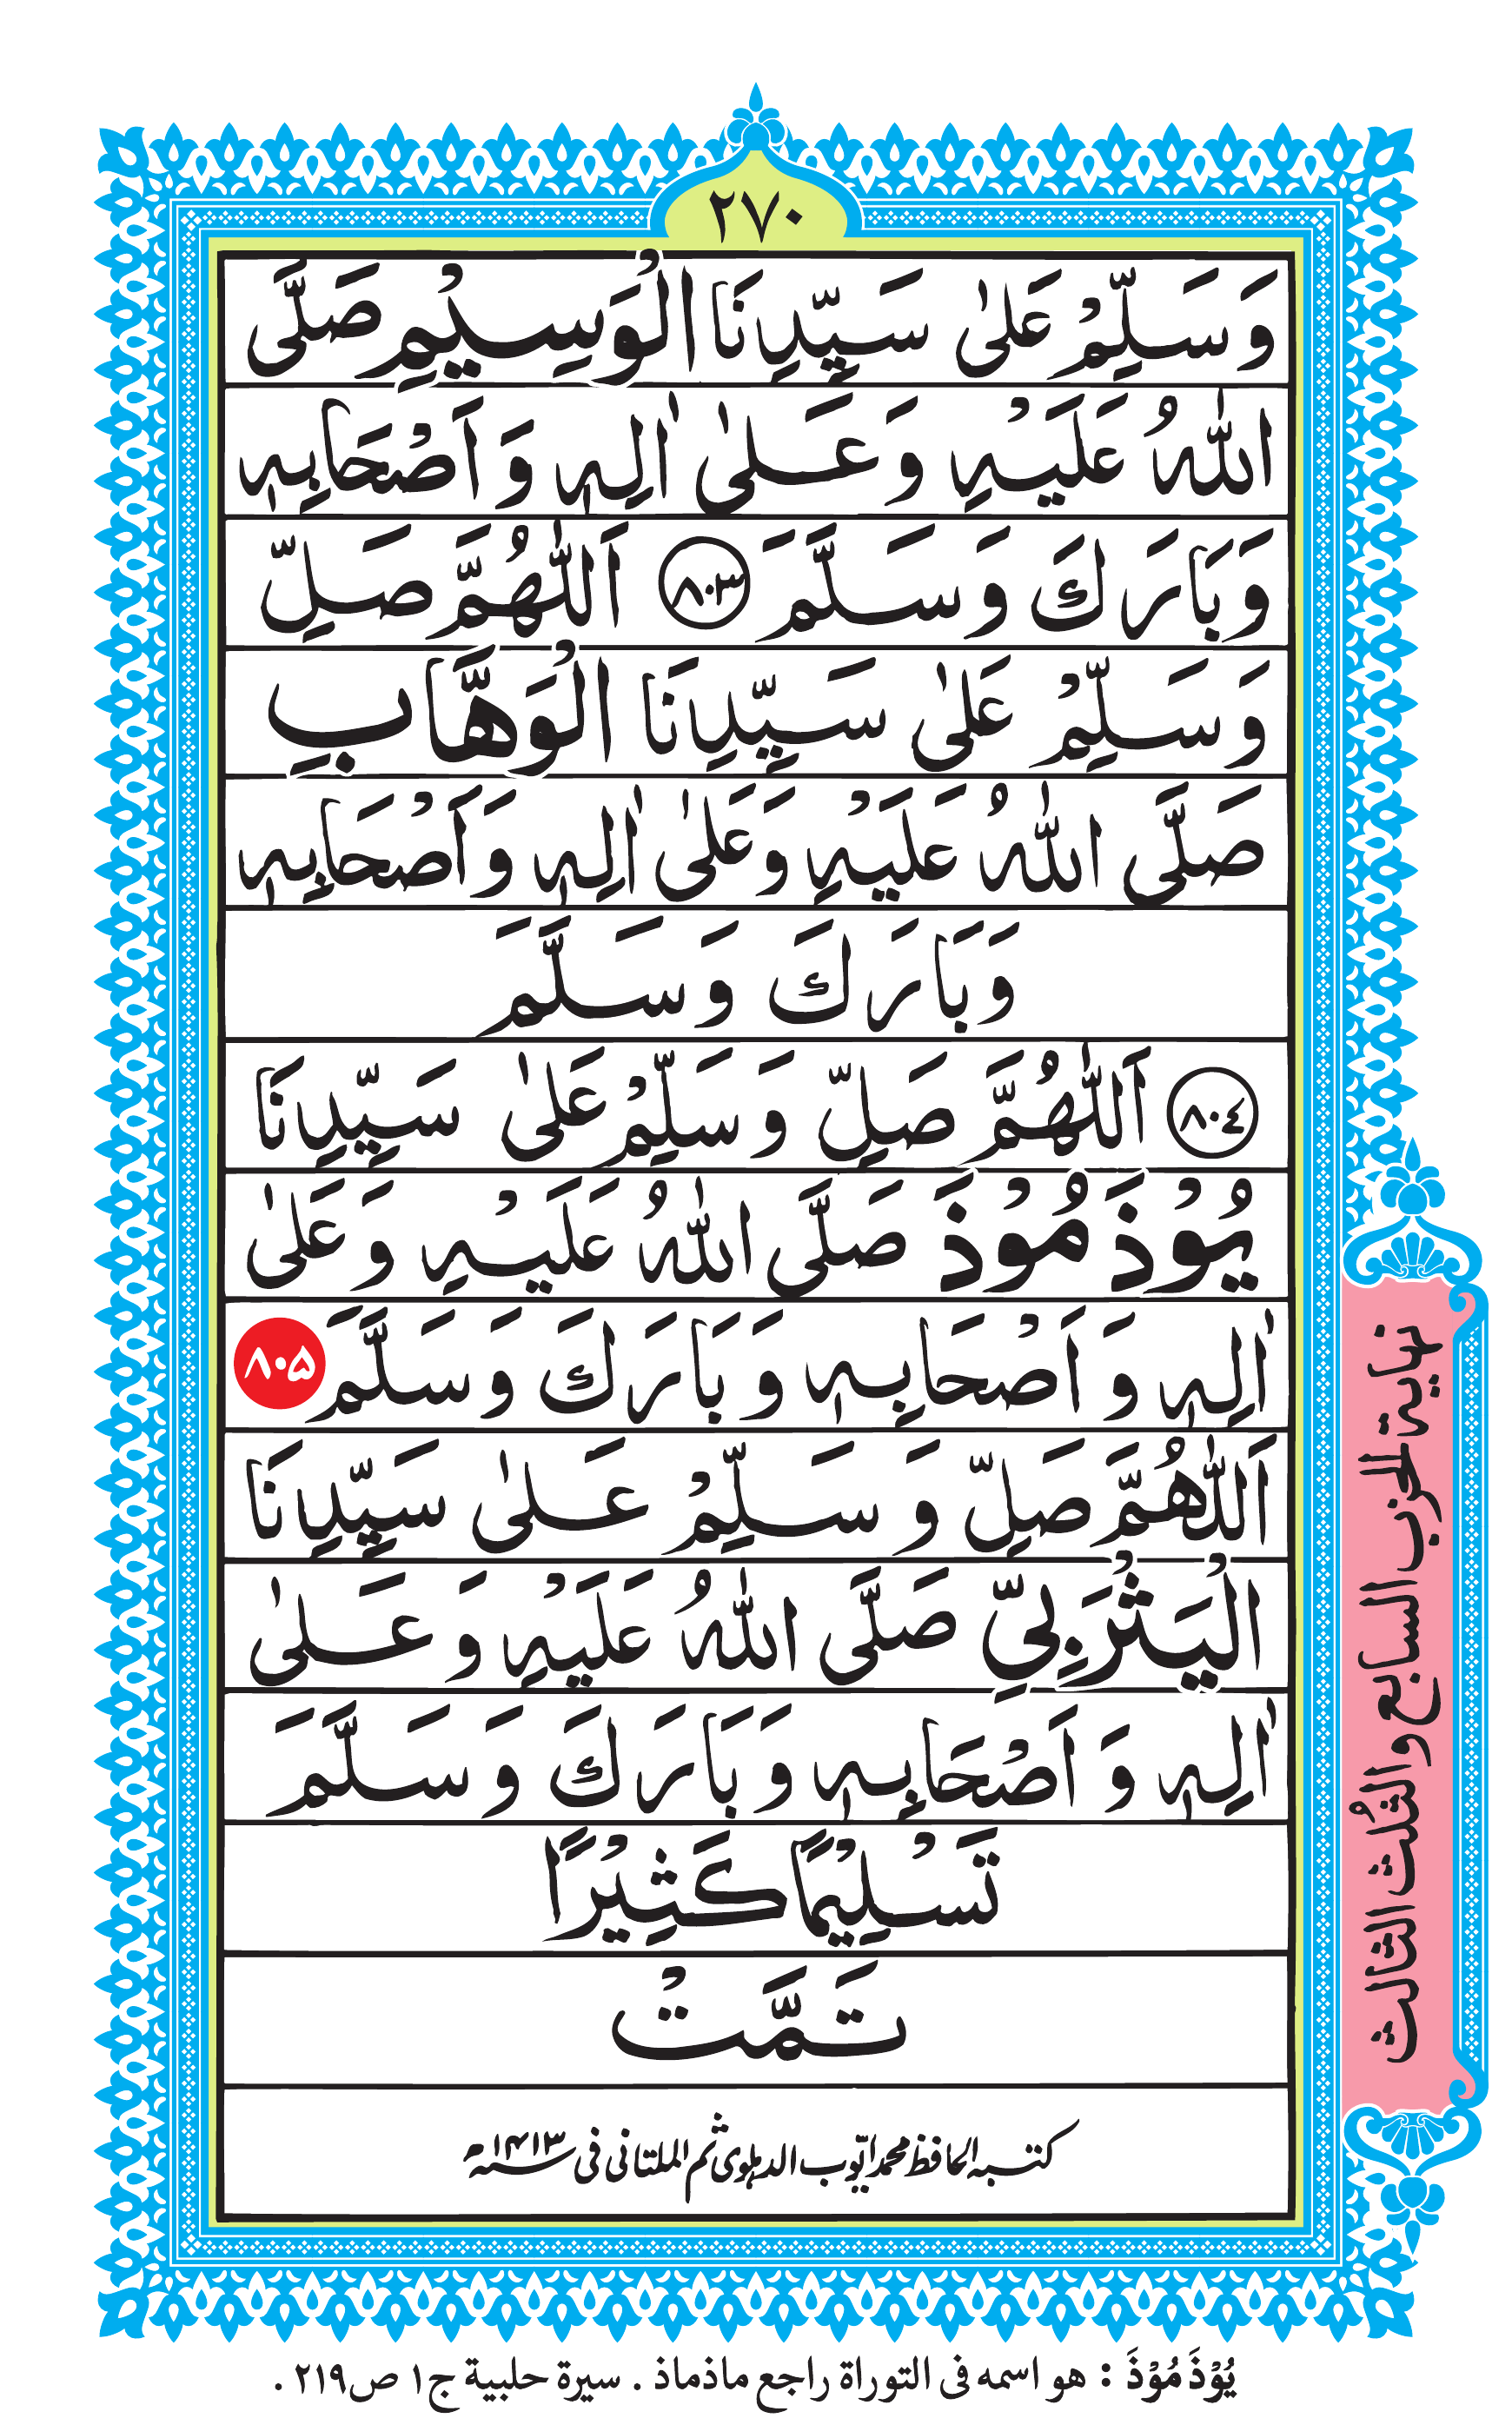 ٢٧٠
وَسَلِّمْ عَلىٰ سَيِّدِنَا الْوَسِيْمِ صَلَّى
اللّٰهُ عَلَيْهِ وَعَلىٰ اٰلِهٖ وَاَصْحَابِهٖ
وَبَارَكَ وَسَلَّمَ ٨٠٣ اَللّٰهُمَّ صَلِّ
وَسَلِّمْ عَلىٰ سَيِّدِنَا الْوَهَّابِ
صَلَّى اللّٰهُ عَلَيْهِ وَعَلىٰ اٰلِهٖ وَاَصْحَابِهٖ
وَبَارَكَ وَسَلَّمَ
٨٠٤ اَللّٰهُمَّ صَلِّ وَسَلِّمْ عَلىٰ سَيِّدِنَا
يُوْذَمُوْذَ صَلَّى اللّٰهُ عَلَيْهِ وَعَلىٰ
اٰلِهٖ وَاَصْحَابِهٖ وَبَارَكَ وَسَلَّمَ ٨٠۵
اَللّٰهُمَّ صَلِّ وَسَلِّمْ عَلىٰ سَيِّدِنَا
الْيَثْرَبِيِّ صَلَّى اللّٰهُ عَلَيْهِ وَعَلىٰ
اٰلِهٖ وَاَصْحَابِهٖ وَبَارَكَ وَسَلَّمَ
تَسْلِيْمًا كَثِيْرًا
تَمَّتْ
كتبه الحافظ محمد ايّوب الدہلوی ثم الملتانی فی سنہ ۱۴۱۳ھ
نهاية الحزب السابع والثُلث الثالث
يُوْذَمُوْذَ : هو اسمه فى التوراة راجع ماذماذ . سيرة حلبية ج١ ص٢١٩ .